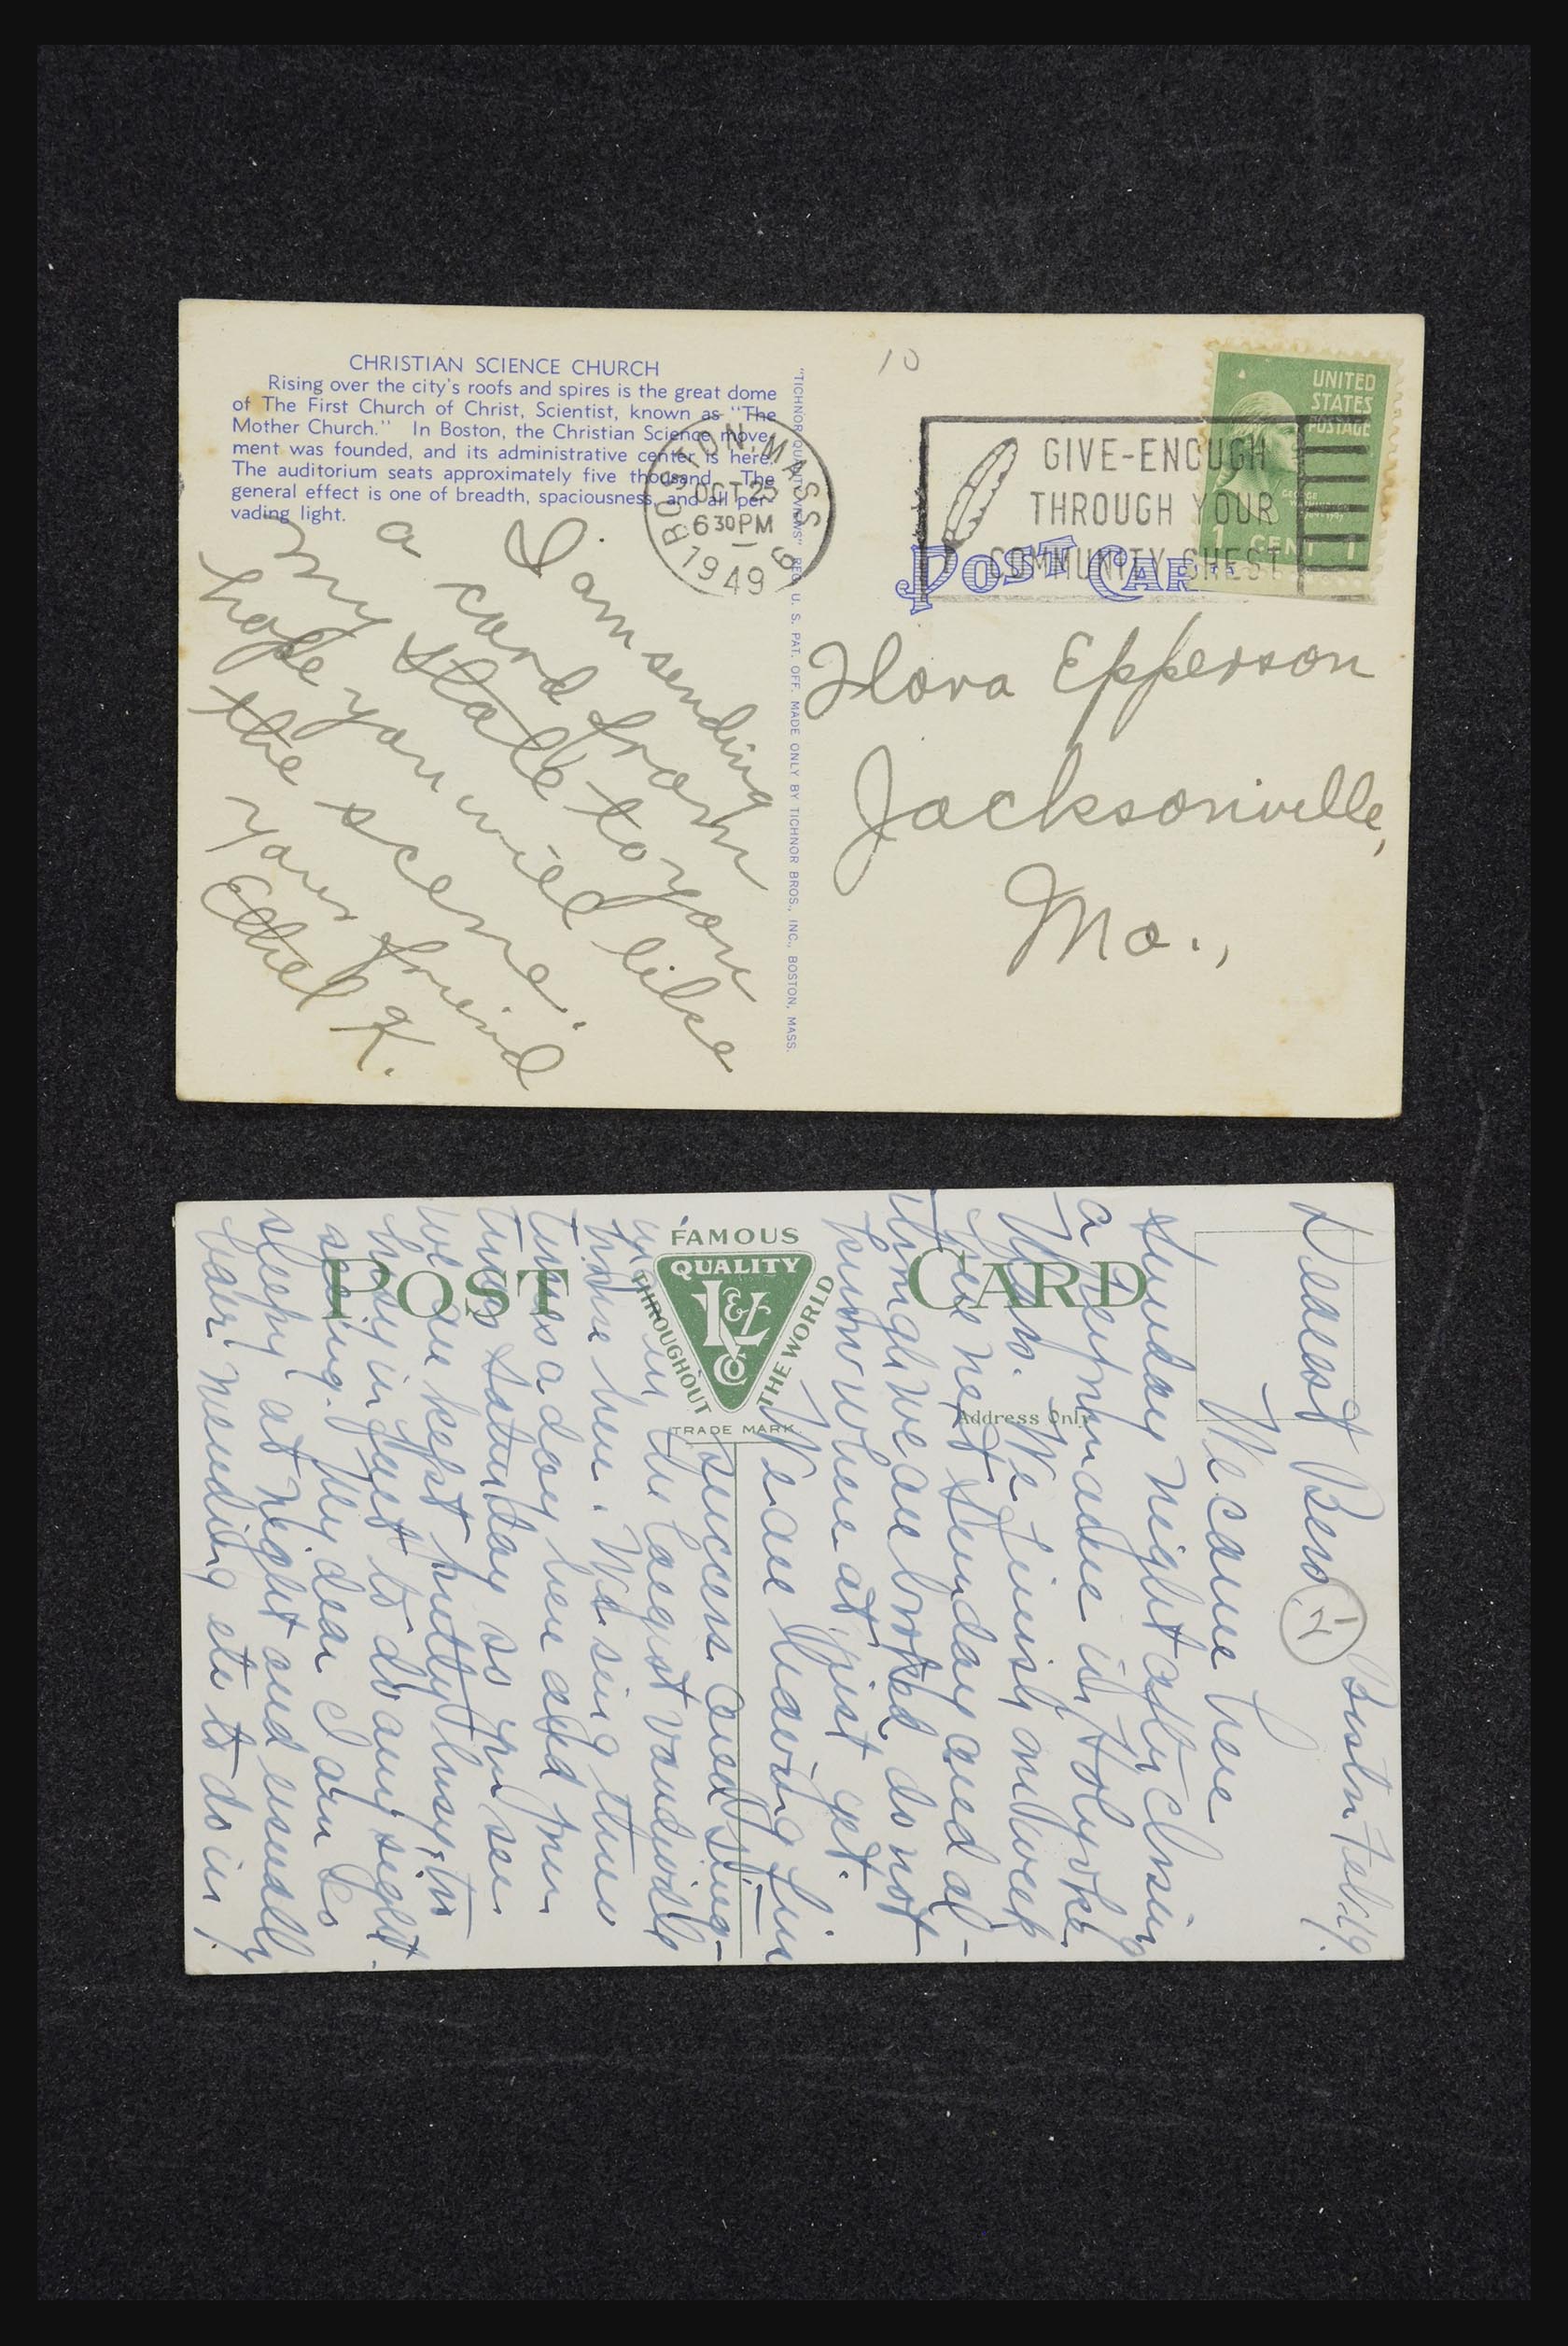 CHRISTIAN SCIENCE CHURCH
Rising over the city's roofs and spires is the great dome
of The First Church of Christ, Scientist, known as "The
Mother Church." In Boston, the Christian Science move-
ment was founded, and its administrative center is here.
The auditorium seats approximately five thousand. The
general effect is one of breadth, spaciousness, and all per-
vading light.
I am sending
a card from
my state to you
hope you will like
the scene.
your friend
Ethel K.
"TICHNOR QUALITY VIEWS" REG. U. S. PAT. OFF. MADE ONLY BY TICHNOR BROS., INC., BOSTON, MASS.
BOSTON, MASS. 9
OCT 25
6 30 PM
1949
10
GIVE-ENOUGH
THROUGH YOUR
COMMUNITY CHEST
UNITED
STATES
POSTAGE
1 CENT 1
POST CARD
Flora Epperson
Jacksonville,
Mo.,
POST CARD
FAMOUS
QUALITY
L&Z
Co
THROUGHOUT THE WORLD
TRADE MARK.
Address Only
Boston Feb. 19.
Dearest Bero 1
We came here
Sunday night after closing
a week in Holyoke
Mass. We finish our week
here next Sunday and al-
though we are booked do not
know where at just yet.
We are having fine
success and sing-
in the largest vaudeville
house here. We sing three
times a day here and four
times Saturday so you see
we are kept pretty busy, too
busy in fact to do any sight
seeing. My dear I am so
sleepy at night and usually
have mending etc to do in